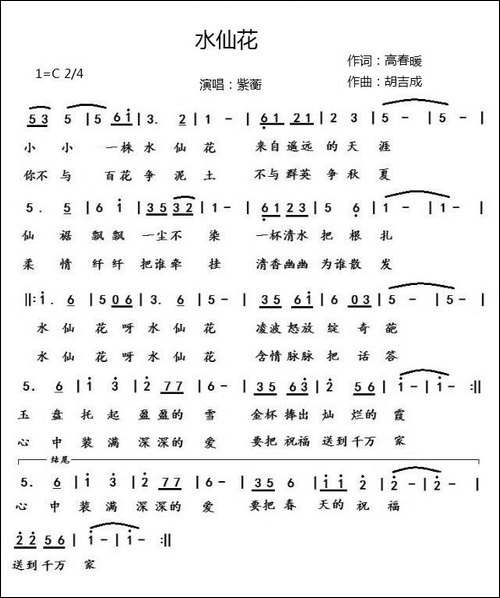 水仙花
作词：高春暖
1=C 2/4
演唱：紫蘅
作曲：胡吉成
5 3 5 | 5 6 i | 3. 2 | 1 - | 6 1 2 1 | 5 3 2 | 5 - | 5 - |
小 小 一株 水 仙 花 来自 遥远 的 天 涯
你不 与 百花 争 泥 土 不与 群英 争 秋 夏
5. 5 | 6 i | 3 5 3 2 | 1 - | 6 1 2 3 | 5 6 | 5 - | 5 - |
仙 裾 飘飘 一尘不 染 一杯清水 把 根 扎
柔 情 纤纤 把谁牵 挂 清香幽幽 为谁 散 发
‖: i. 6 | 5 0 6 | 3. 2 | 5 - | 3 5 6 i | 6 0 3 | 5 - | 5 - |
水 仙 花 呀 水 仙 花 凌波 怒放 绽 奇 葩
水 仙 花 呀 水 仙 花 含情 脉脉 把 话 答
5. 6 | i 3 | 2 7 7 | 6 - | 3 5 6 3 | 2 5 6 | i - | i - :‖
玉 盘 托 起 盈盈的 雪 金杯 捧出 灿 烂的 霞
心 中 装 满 深深的 爱 要把 祝福 送到千万 家
结尾
5. 6 | i 3 | 2 7 7 | 6 - | 3 5 6 5 | i i 2 | 2 - | 2 - |
心 中 装 满 深深的 爱 要把 春天 的祝 福
2 2 5 6 | i - | i - :‖
送到 千万 家